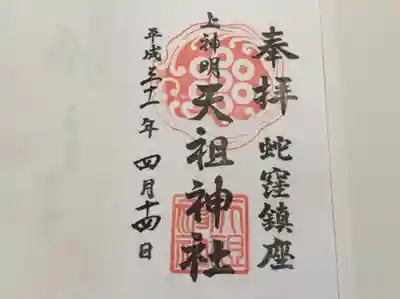 奉拝 蛇窪鎮座
上神明
天祖神社
平成三十一年 四月十四日